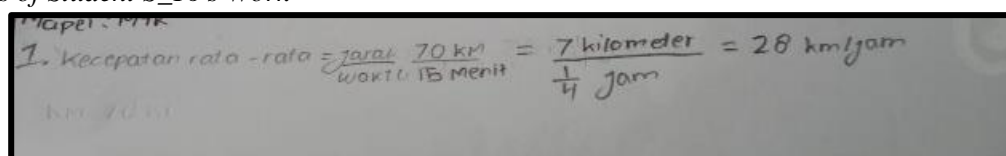 Mapel : MTK
1. Kecepatan rata-rata = jarak/waktu 70 km/15 menit = 7 kilometer/1/4 jam = 28 km/jam